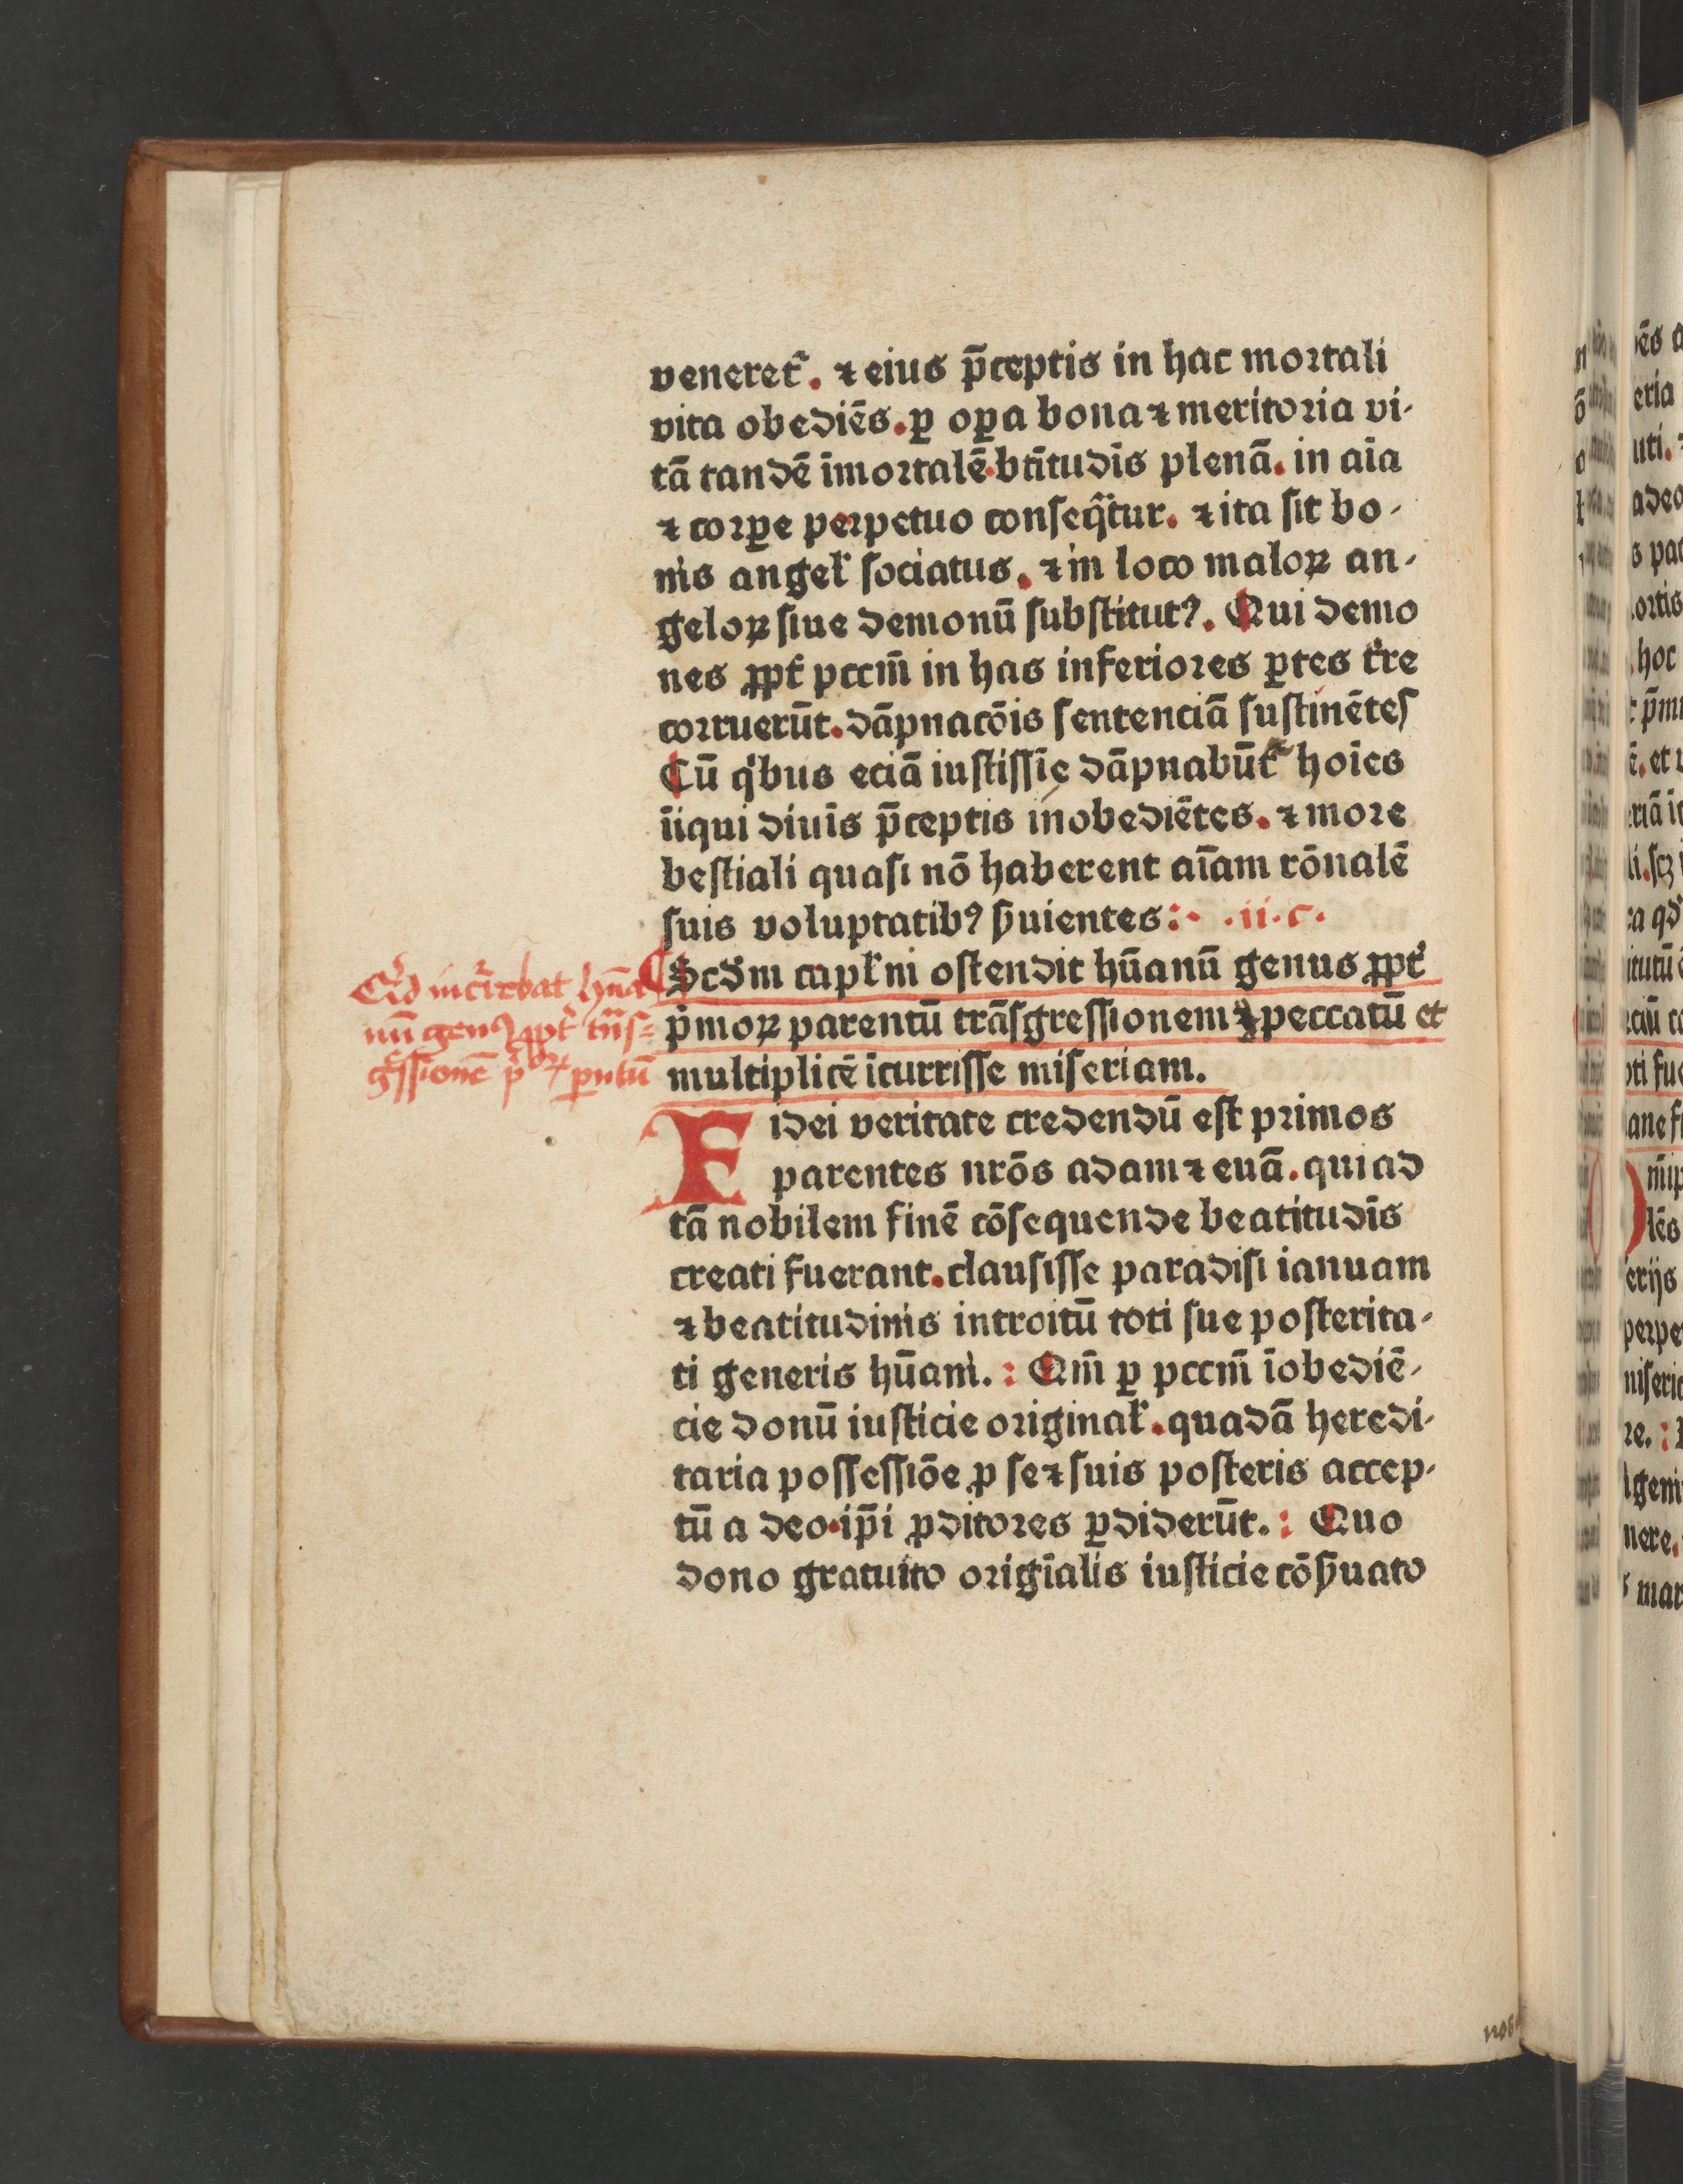 veneret᷑. ⁊ eius p̄ceptis in hac mortali
vita obediēs. ꝑ oꝑa bona ⁊ meritoria vi-
tā tandē īmortalē. bt̄itudīs plenā. in aīa
⁊ corꝑe perpetuo conseq̄tur. ⁊ ita sit bo-
nis angel̕ sociatus. ⁊ in loco maloꝝ an-
geloꝝ siue demonū substitutꝰ. Qui demo
nes ꝓpt̕ pccm̄ in has inferiores ꝑtes t̕re
corruerūt. dāpnacōis sentenciā sustinētes
Cū q̕bus eciā iustissīe dāpnabūt᷑ hoīes
īiqui diuīs p̄ceptis inobediētes. ⁊ more
bestiali quasi nō haberent aīam rōnalē
suis voluptatibꝰ ẜuientes: .ii.c.
Scd̕m capl̕m ostendit hūanū genus ꝓpt̕
p̕moꝝ parentū trāsgressionem ⁊ peccatū et
multiplicē īcurrisse miseriam.
Fidei veritate credendū est primos
parentes nrōs adam ⁊ euā. qui ad
tā nobilem finē cōsequende beatitudīs
creati fuerant. clausisse paradisi ianuam
⁊ beatitudinis introitū toti sue posterita-
ti generis hūani. : Qm̄ ꝑ pccm̄ īobediē-
cie donū iusticie original̕. quadā heredi-
taria possessiōe ꝓ se ⁊ suis posteris accep-
tū a deo. ip̄i ꝓditores ꝑdiderūt. : Quo
dono gratuito origīalis iusticie cōẜuato
genꝰ ꝓpt̕